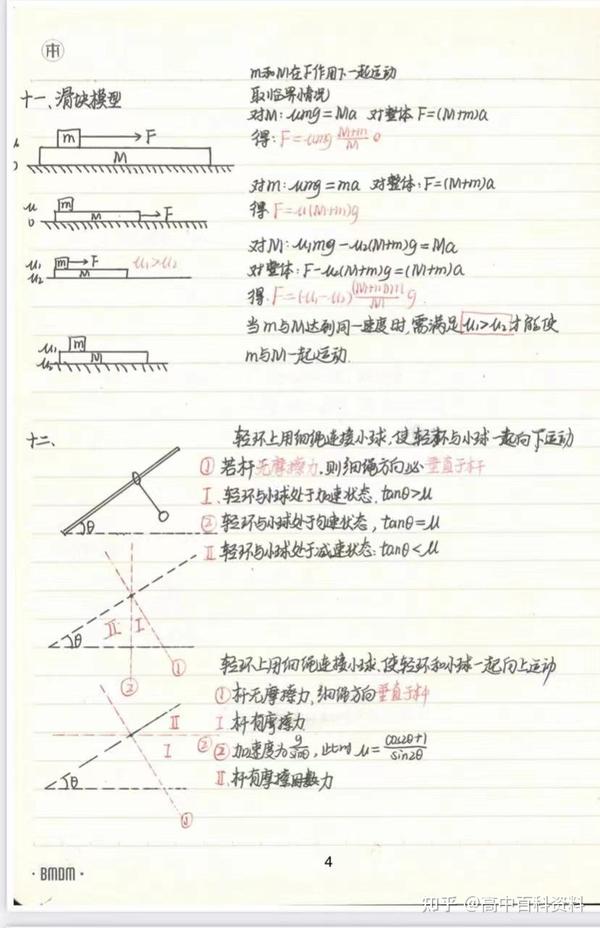 m和M在F作用下一起运动
十一、滑块模型
取临界情况
对M: μmg=Ma 对整体 F=(M+m)a
得: F=μmg (M+m)/M
m F
M
对m: μmg=ma 对整体: F=(M+m)a
得 F=μ(M+m)g
μ m
0 M F
对M: μ₁mg-μ₂(M+m)g=Ma
对整体: F-μ₂(M+m)g=(M+m)a
得: F=(μ₁-μ₂)(M+m)m/M g
μ₁ m F μ₁>μ₂
μ₂ M
当m与M达到同一速度时,需满足μ₁>μ₂才能使
m与M一起运动.
μ₁ m
M
十二、
轻环上用细绳连接小球,使轻环与小球一起向下运动
① 若杆无摩擦力,则细绳方向必垂直于杆
Ⅰ.轻环与小球处于加速状态,tanθ>μ
② 轻环与小球处于匀速状态,tanθ=μ
Ⅱ 轻环与小球处于减速状态:tanθ<μ
θ
Ⅱ Ⅰ
θ
① 
②
轻环上用细绳连接小球,使轻环和小球一起向上运动
①杆无摩擦力,细绳方向垂直于杆
Ⅰ 杆有摩擦力
②加速度为g/sinθ,此时 μ=(cos2θ+1)/sin2θ
Ⅱ.杆有摩擦力
Ⅱ
Ⅰ ②
θ
①
4
·BMDM·
知乎 @高中百科资料